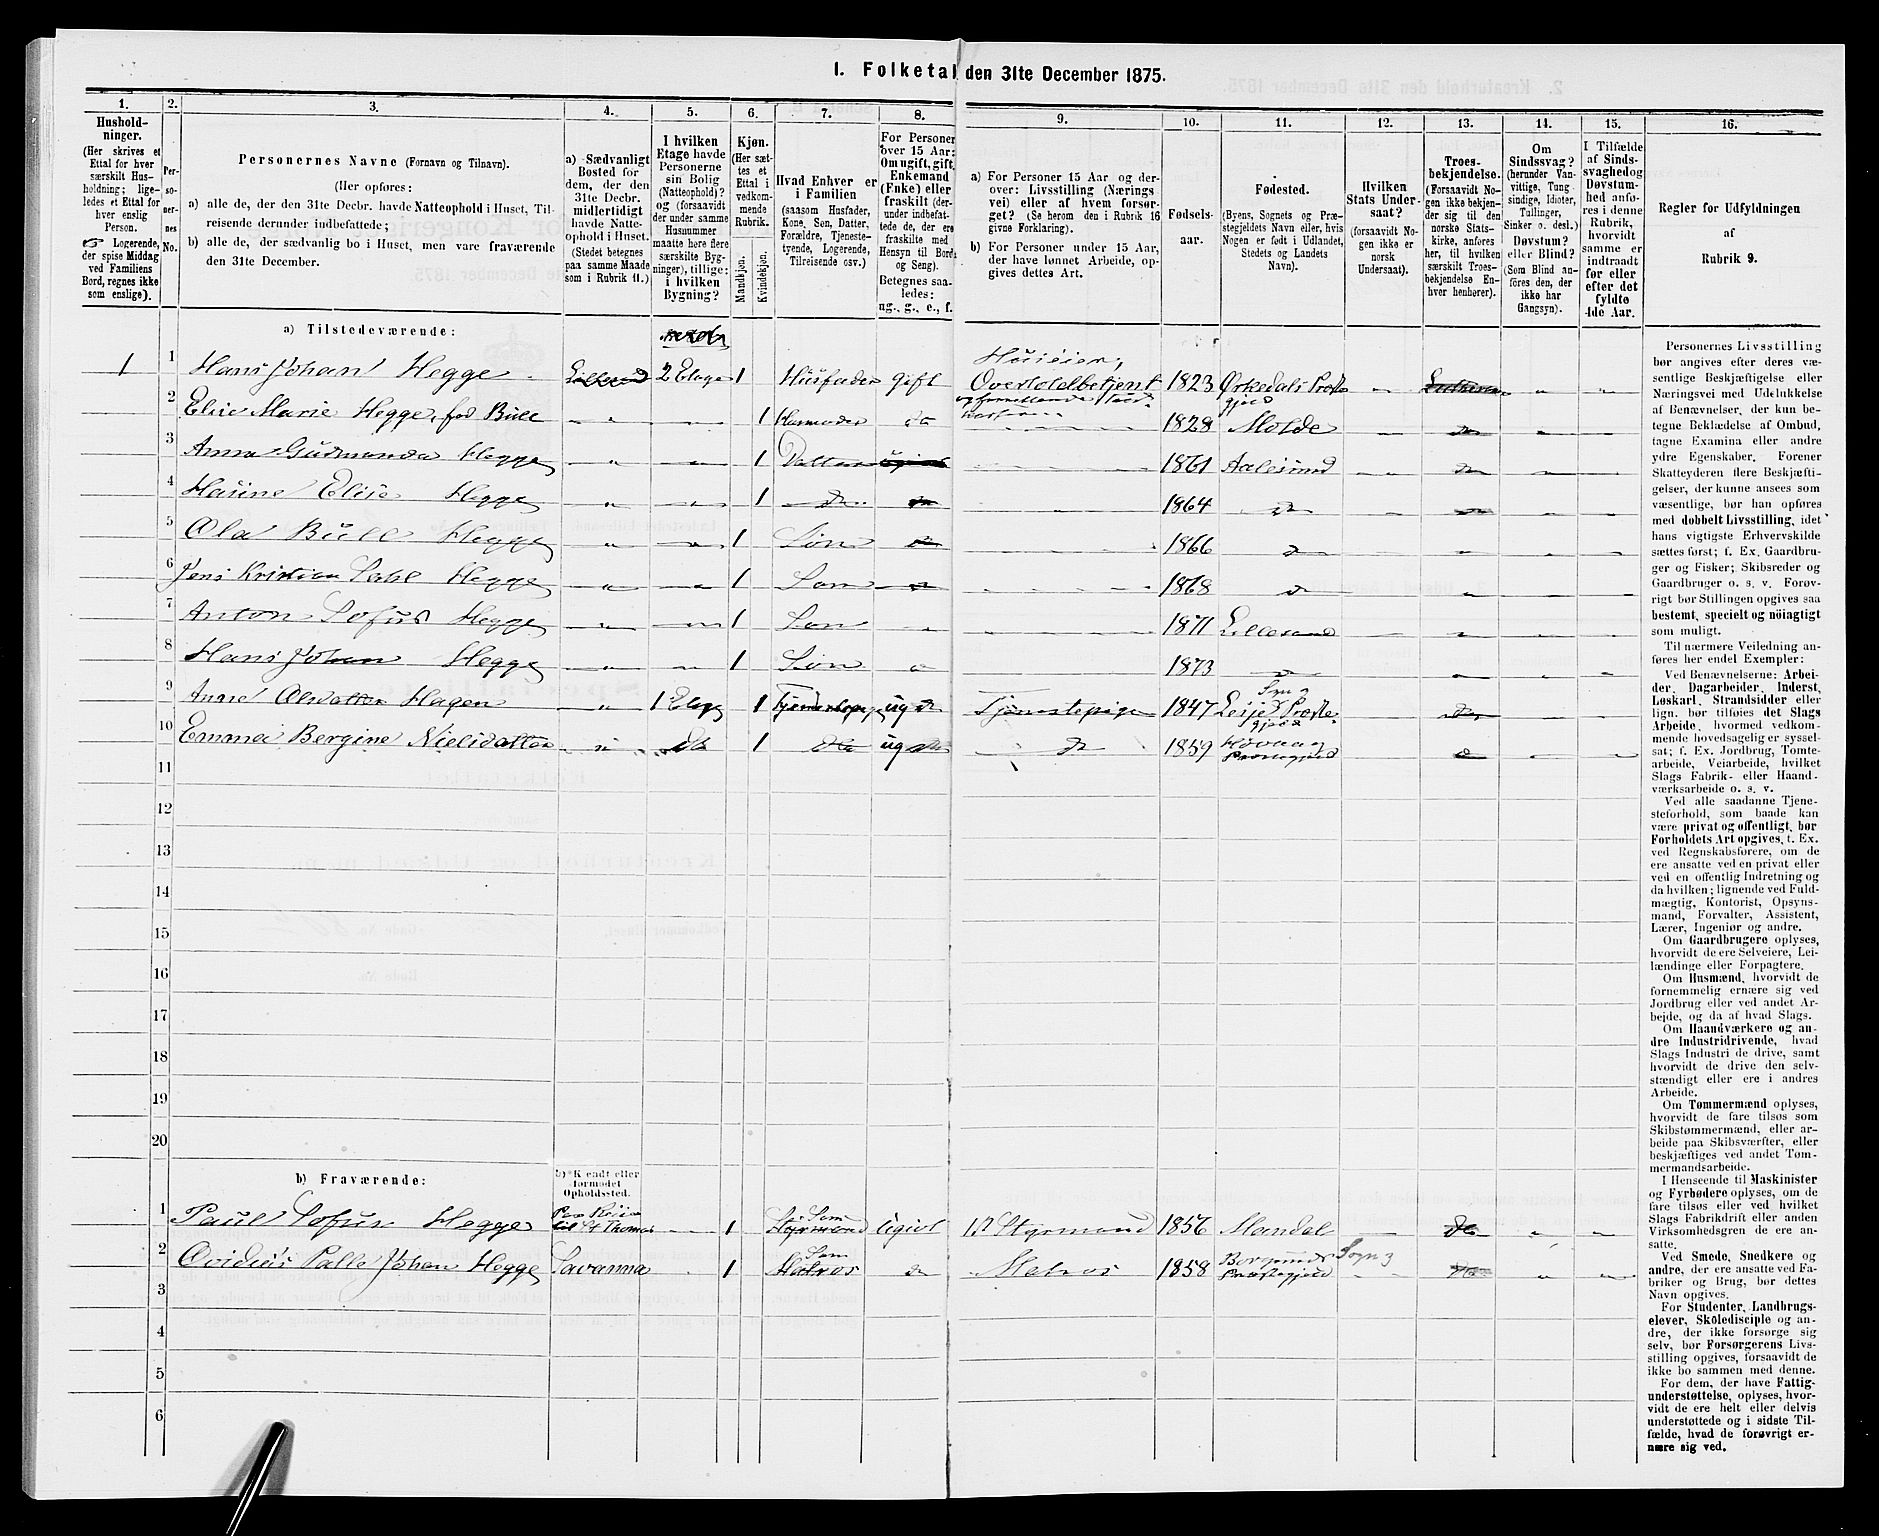 1. Folketal den 31te December 1875.
1.
2.
3.
4.
5.
6.
7.
8.
9.
10.
11.
12.
13.
14.
15.
16.
Hushold-
ninger.
(Her skrives et
Ettal for hver
særskilt Hus-
holdning; lige-
ledes et Ettal for
hver enslig
Person.
☞ Logerende,
der spise Middag
ved Familiens
Bord, regnes ikke
som enslige).
Per-
so-
ner-
nes
No.
Personernes Navne (Fornavn og Tilnavn).
(Her opføres:
a) alle de, der den 31te Decbr. havde Natteophold i Huset, Til-
reisende derunder indbefattede;
b) alle de, der sædvanlig bo i Huset, men vare fraværende
den 31te December.
a) Sædvanligt
Bosted for
dem, der den
31te Decbr.
midlertidigt
havde Natte-
ophold i Huset.
(Stedet betegnes
paa samme Maade
som i Rubrik 11.)
I hvilken
Etage havde
Personerne
sin Bolig
(Natteophold)?
og (forsaavidt
der under samme
Husnummer
maatte høre flere
særskilte Byg-
ninger), tillige:
i hvilken
Bygning?
Kjøn.
(Her sæt-
tes et
Ettal i
vedkom-
mende
Rubrik.
Mandkjøn.
Kvindekjøn.
Hvad Enhver er
i Familien
(saasom Husfader,
Kone, Søn, Datter,
Forældre, Tjeneste-
tyende, Logerende,
Tilreisende osv.)
For Personer
over 15 Aar:
Om ugift, gift,
Enkemand
(Enke) eller
fraskilt (der-
under indbefat-
tede de, der ere
fraskilte med
Hensyn til Bord
og Seng).
Betegnes saa-
ledes:
ug., g., e., f.
a) For Personer 15 Aar og der-
over: Livsstilling (Nærings-
vei) eller af hvem forsør-
get? (Se herom den i Rubrik 16
givne Forklaring).
b) For Personer under 15 Aar,
der have lønnet Arbeide, op-
gives dettes Art.
Fødsels-
aar.
Fødested.
(Byens, Sognets og Præ-
stegjeldets Navn eller, hvis
Nogen er født i Udlandet,
Stedets og Landets
Navn).
Hvilken
Stats Under-
saat?
(forsaavidt No-
gen ikke er
norsk
Undersaat).
Troes-
bekjendelse.
(Forsaavidt No-
gen ikke bekjen-
der sig til den
norske Stats-
kirke, anføres
her, til hvilken
særskilt Troes-
bekjendelse En-
hver henhører).
Om
Sindssvag?
(herunder Van-
vittige, Tung-
sindige, Idioter,
Tullinger,
Sinker o. desl.)
Døvstum?
eller Blind?
(Som Blind an-
føres den, der
ikke har
Gangsyn).
I Tilfælde
af Sinds-
svaghedog
Døvstum-
hed anfø-
res i denne
Rubrik,
hvorvidt
samme er
indtraadt
før eller
efter det
fyldte
4de Aar.
Regler for Udfyldningen
af
Rubrik 9.
a) Tilstedeværende:
1 1 Hans Johan Hegge Lillesand 2 Etage 1 Husfader gift Huseier, Overtoldbetjent 1823 Ørkedals Præste gjeld Luthersk
2 Elise Marie Hegge, fød Bull " " 1 Husmoder do 1828 Molde do
3 Anna Gudmunda Hegge " " 1 Datter ugivt 1861 Aalesund do
4 Hasine Elise Hegge " " 1 do do 1864 do do
5 Ola Bull Hegge " " 1 Søn do 1866 do
6 Jens Kristian Hegge " " 1 Søn 1868 do
7 Anton Sofus Hegge " " 1 Søn 1871 Lillesand
8 Hans Johan Hegge " " 1 Søn 1873 do
9 Anne Olsdatter Hagen " 1 Etage 1 Tjenestepige ug Tjenestepige 1847 Præste- gjeld do
10 Emma Bergine Nielsdatter " do 1 do ug do 1859 Præstegjeld do
11
12
13
14
15
16
17
18
19
20
b) Fraværende:
b) Kjendt eller
formodet
Opholdssted.
1 Paul Sofus Hegge Paa Reise til St Thomas 1 Søn Styrmand ugivt 1st Styrmand 1856 Mandal do
2 Ovidius Palle Johan Hegge Savanna 1 Søn Matros do Matros 1858 Borgunds Præstegjeld Sogn do
3
4
5
6
Personernes Livsstilling
bør angives efter deres væ-
sentlige Beskjæftigelse eller
Næringsvei med Udelukkelse
af Benævnelser, der kun be-
tegne Beklædelse af Ombud,
tagne Examina eller andre
ydre Egenskaber. Forener
Skatteyderen flere Beskjæfti-
gelser, der kunne ansees som
væsentlige, bør han opføres
med dobbelt Livsstilling, idet
hans vigtigste Erhvervskilde
sættes først; f. Ex. Gaardbru-
ger og Fisker; Skibsreder og
Gaardbruger o. s. v. Forøv-
rigt bør Stillingen opgives saa
bestemt, specielt og nöiagtigt
som muligt.
Til nærmere Veiledning an-
føres her endel Exempler:
Ved Benævnelserne: Arbei-
der, Dagarbeider, Inderst,
Løskarl, Strandsidder eller
lign. bør tilføies det Slags
Arbeide, hvormed vedkom-
mende hovedsagelig er syssel-
sat; f. Ex. Jordbrug, Tomte-
arbeide, Veiarbeide, hvilket
Slags Fabrik- eller Haand-
værksarbeide o. s. v.
Ved alle saadanne Tjene-
steforhold, som baade kan
være privat og offentligt, bør
Forholdets Art opgives, t. Ex.
ved Regnskabsførere, om de
ere ansatte ved en privat eller
ved en offentlig Indretning og
da hvilken; lignende ved Fuld-
mægtig, Kontorist, Opsyns-
mand, Forvalter, Assistent,
Lærer, Ingeniør og andre.
Om Gaardbrugere oplyses,
hvorvidt de ere Selveiere, Lei-
lændinge eller Forpagtere.
Om Husmænd, hvorvidt de
fornemmelig ernære sig ved
Jordbrug eller ved andet Ar-
bejde, og da af hvad Slags.
Om Haandværkere og an-
dre Industridrivende, hvad
Slags Industri de drive, samt
hvorvidt de drive den selv-
stændigt eller ere i andres
Arbeide.
Om Tømmermænd oplyses,
hvorvidt de fare tilsøs som
Skibstømmermænd, eller ar-
beide paa Skibsværfter, eller
beskjæftiges ved andet Tøm-
mermandsarbeide.
I Henseende til Maskinister
og Fyrbødere oplyses, om de
fare tilsøs eller ved hvilket
Slags Fabrikdrift eller anden
Virksomhedsgren de ere an-
satte.
Ved Smede, Snedkere og
andre, der ere ansatte ved Fa-
briker og Brug, bør dettes
Navn opgives.
For Studenter, Landbrugs-
elever, Skoledisciple og an-
dre, der ikke forsørge sig
selv, bør Forsørgerens Livs-
stilling opgives, forsaavidt de
ikke bo sammen med denne.
For dem, der have Fattig-
understøttelse, oplyses, hvor-
vidt de ere helt eller delvis
understøttede og i sidste Til-
fælde, hvad de forøvrigt er-
nære sig ved.